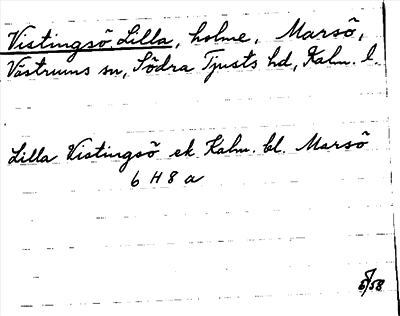 Vistingsö, Lilla, holme, Marsö,
Västrums sn, Södra Tjusts hd, Kalm. l.
Lilla Vistingsö ek. Kalm. bl. Marsö
6 H 8 a
5/58